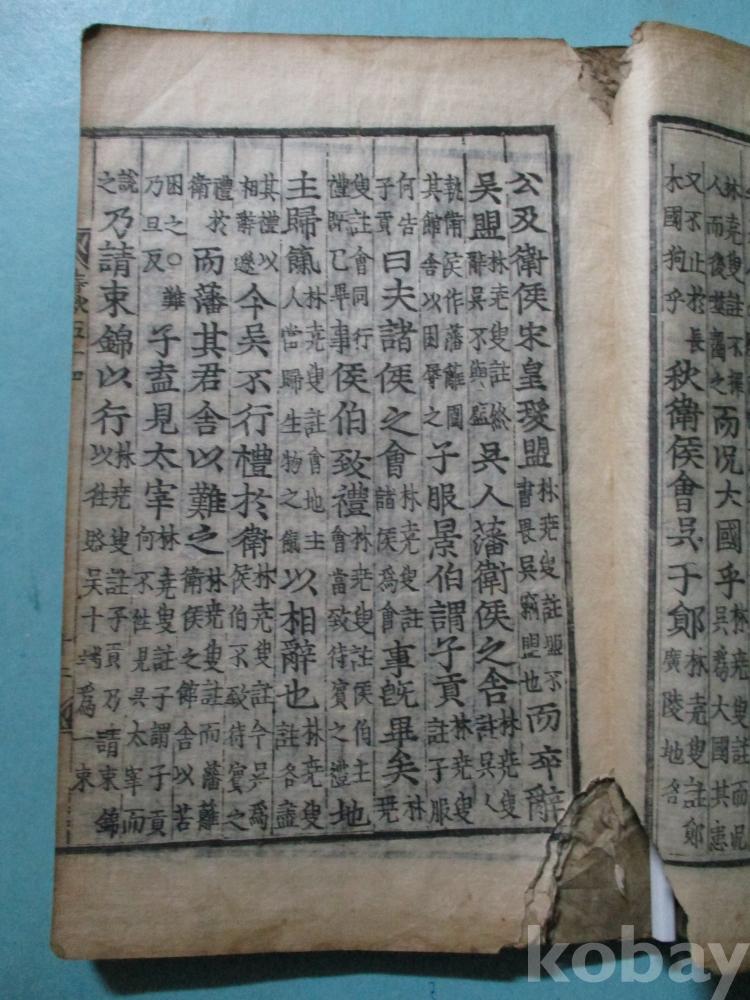 林堯叟註不擇人而後噬齧之而況大國乎林堯叟註而況吳爲大國其患
又不止於長木國狗乎秋衛侯會吳于鄖林堯叟註鄖廣陵地名
公及衛侯宋皇瑗盟林堯叟註盟不書畏吳竊盟也而卒辭
吳盟林堯叟註終辭吳不與盟吳人藩衛侯之舍林堯叟註吳人
執衛侯作藩籬圍其館舍以困辱之子服景伯謂子貢林堯叟註子服
何告子貢曰夫諸侯之會林堯叟註諸侯爲會事旣畢矣林堯
叟註會同行禮旣已畢事侯伯致禮林堯叟註侯伯主會當致待賓之禮地
主歸餼林堯叟註會地主人當歸生物之餼以相辭也林堯叟註各盡
其禮以相辭遜今吳不行禮於衛林堯叟註今吳爲侯伯不致待賓之
禮於衛而藩其君舍以難之林堯叟註而藩籬衛侯之館舍以苦
困之○難乃旦反子盍見太宰林堯叟註子謂子貢何不往見吳太宰而
說之乃請束錦以行林堯叟註子貢乃請束錦以往賂吳十端爲一束
春秋五十四
kobay